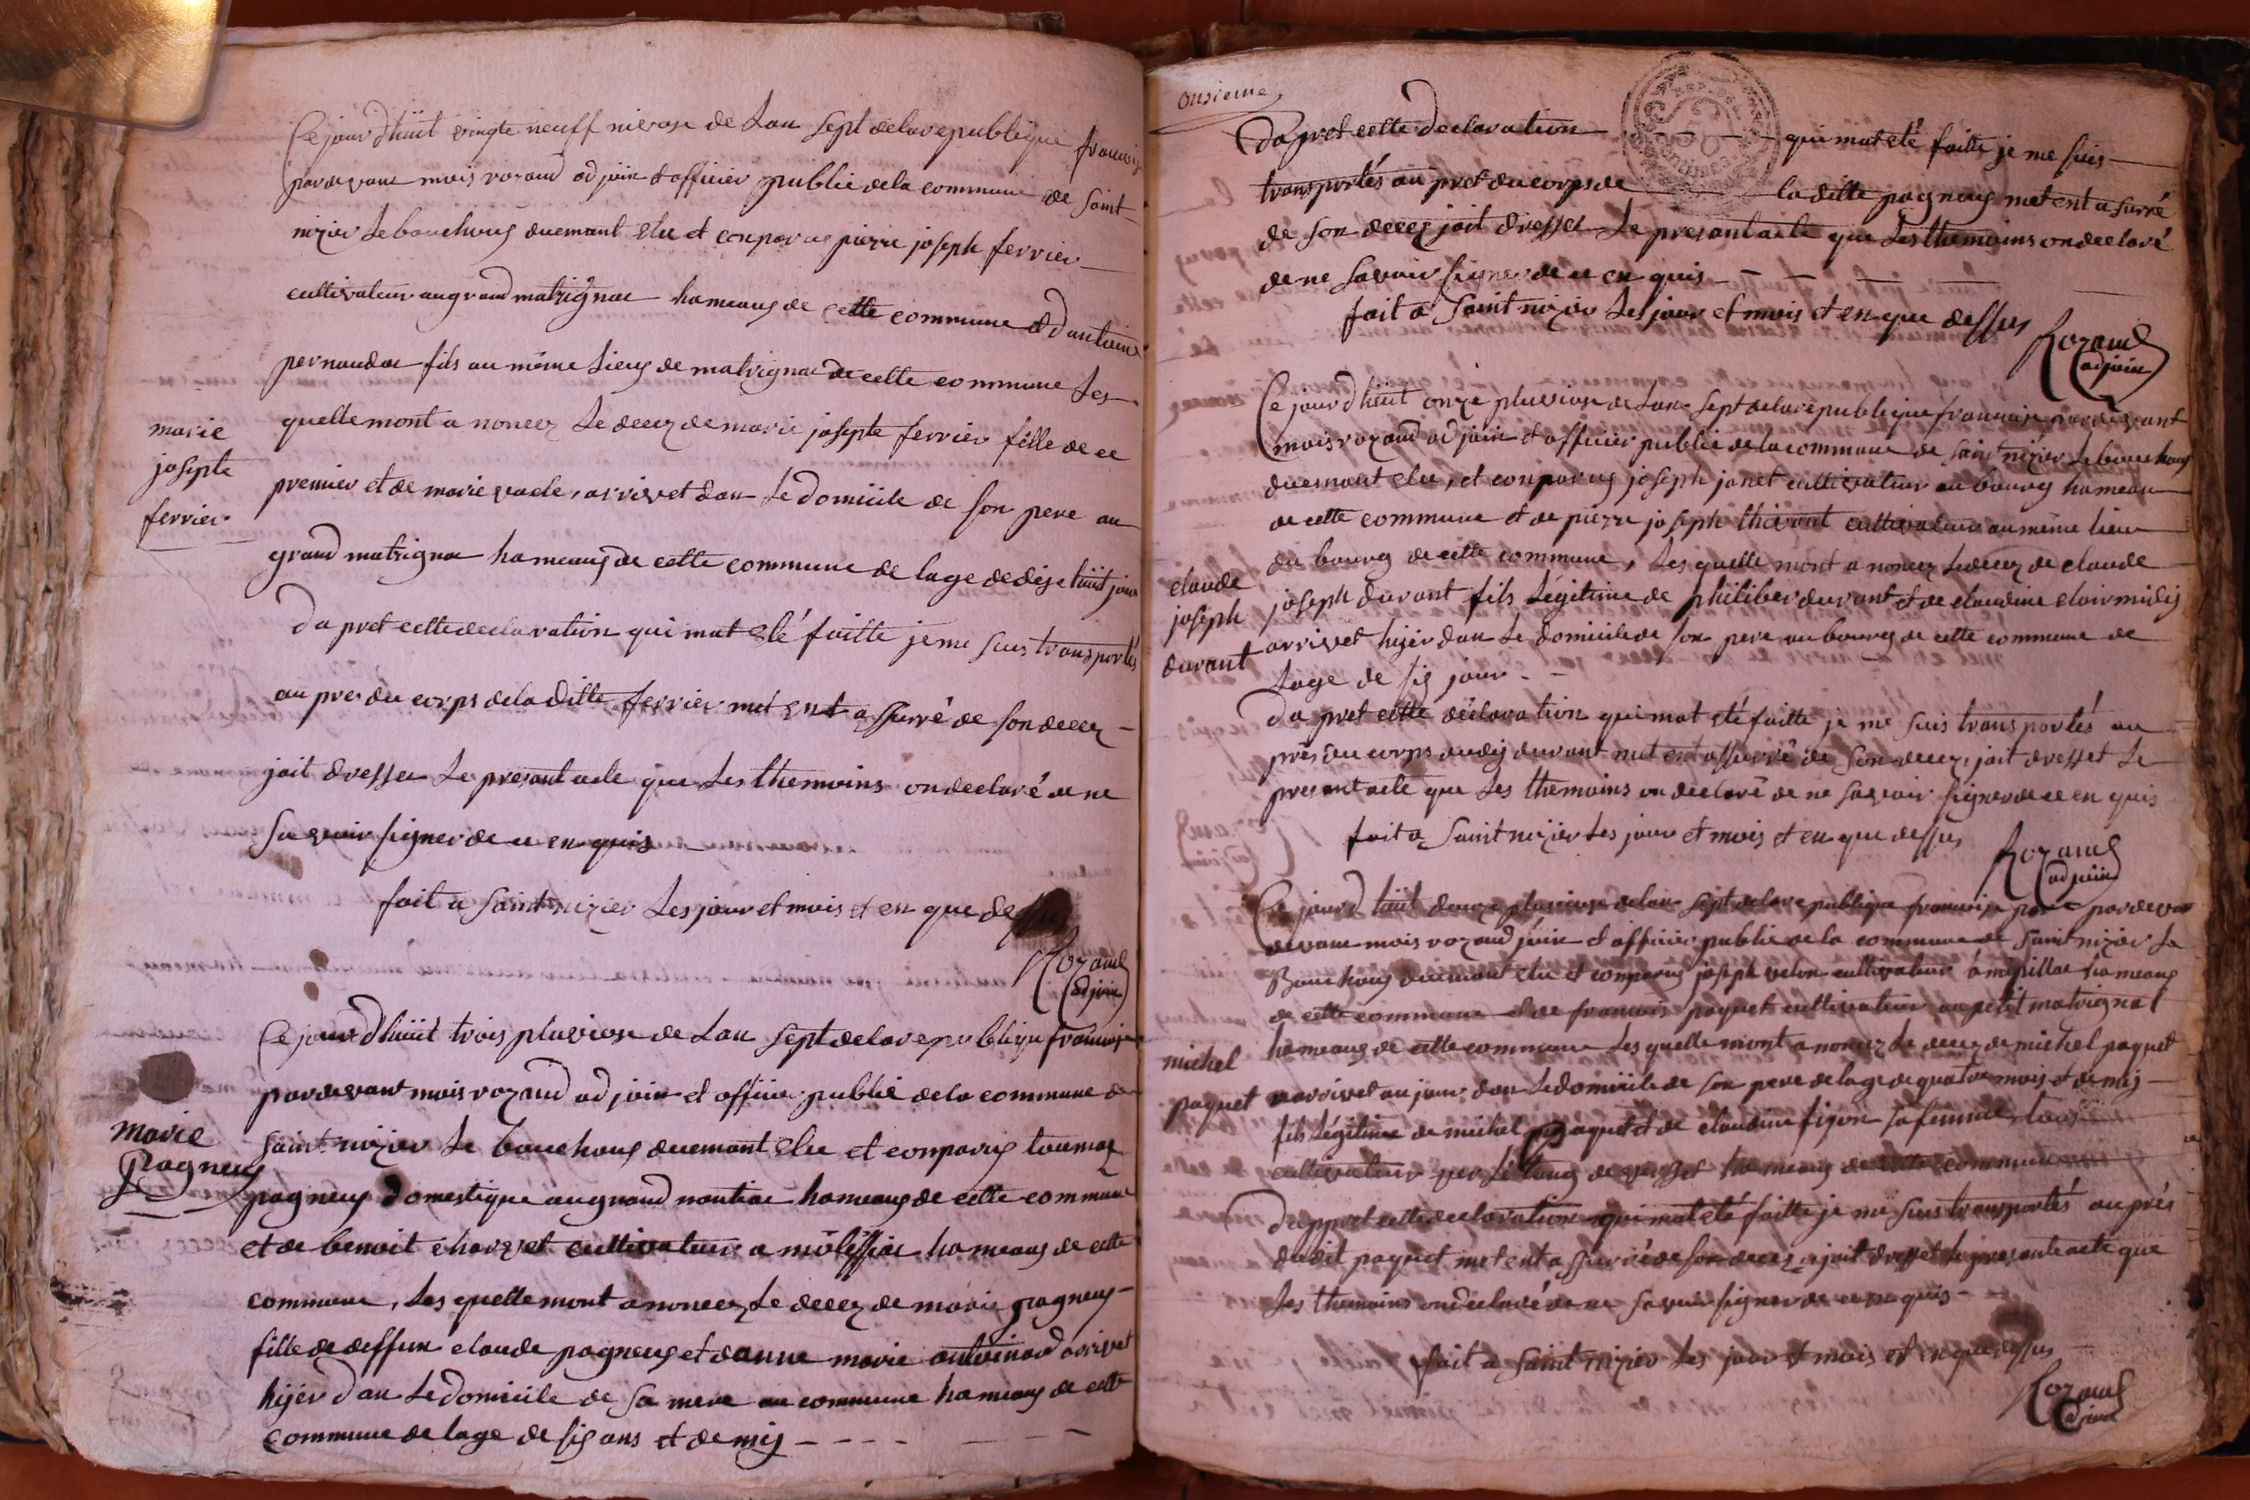 Ce jour dhüit vingte neuff nivose de Lan Sept de la republique francaise
par devant mois rozand adjoin et officier public de la commune de Saint
nizier Le bouchoug duemant Elu et conparus pierre joseph ferrier
cultivateur au grand matrignac hameaus de cette commune et dantoine
pernaudat fils au même Lieug de matrignac de cette commune Les
quelle mont a noncez Le decez de marie josepte ferrier fille de ce
marie
josepte
ferrier
premier et de marie vacle, arrivet dan Le domicile de Son pere au
grand matrignac hameaus de cette commune de lage de dije huit jour
Da pret cette declaration qui mat eté faitte je me Suis transportés
au pres du corps de la ditte ferrier met ent assurré de Son decez
jait dresser Le present acte que Les themoins on declaré de ne
Savoir Signer de ce en quis
fait a Saint nizier Les jour et mois et en que dessus
Rozand
adjoin
Ce jour dhuit trois pluviose de Lan Sept de la republique francaise
par devant mois rozand adjoin et officier public de la commune de
Saint nizier Le bouchoug duemant Elu et conparus toumaz
marie
pagneug
pagneug domestique au grand nontiac hameaus de cette commune
et de benoit charvet cultivateur a moléssiac hameaus de cette
commune, Les quelle mont anoncez Le decez de marie pagneug
fille de deffun claude pagneug et danne marie antoinard arrivet
hijer dan Le domicile de Sa mere au commune hameaus de cette
commune de lage de Sis ans et demis
onsieme
Da pret cette declaration qui mat eté faitte je me Suis
transportés au pret du corps de la ditte pagneug met ent assurré
de Son decez jait dresser Le present acte que Les themoins on declaré
de ne Savoir Signer de ce en quis
fait a Saint nizier Les jour et mois et en que dessus
Rozand
adjoin
Ce jour dhüit onze pluviose de Lan Sept de la republique francaise par devant
mois rozand adjoin et officier public de la commune de Saint nizier Le bouchoug
duemant elu, et conparus joseph janet cultivateur au bourg hameau
de cette commune et de pierre joseph thivant cultivateur au même lieu
du bourg de cette commune, Les quelle mont a noncez Le decez de claude
claude
joseph
durant
joseph durant fils Légitime de philiber durant et de claudine clairmidij
arrivet hijer dan Le domicile de Son pere au bourg de cette commune de
Lage de Sis jour
Da pret cette déclaration qui mat eté faitte je me Suis transportés au
prés du corps dudij durant met ent assurré de Son decez, jait dresset Le
present acte que Les themoins on déclaré de ne Savoir Signer de ce en quis
fait a Saint nizier Les jour et mois et en que dessus
Rozand
adjoin
Ce jour dhuit douze pluviose de lan Sept de la republique francaise par devan
devant mois rozand join et officier public de la commune de Saint nizier Le
Bouchoug duemant elu et conparus joseph velon cultivateur a mépillac hameaus
de cette commune et de francois paquet cultivateur au petit matrignat
hameaus de cette commune Les quelle mont a noncez Le decez de michel paquet
michel
paquet
arrivet au jour, dan Le domicile de Son pere de lage de quatre mois et demis
fils Légitime de michel paquet et de claudine fijon Sa femme, tous
cultivateur hameaus de cette commune
Dappret cette declaration qui mat eté faitte je me Suis transportés au prés
dudit paquet met ent assurré de Son decez, jait dresset Le present acte que
Les themoins on declaré de ne Savoir Signer de ce en quis
fait a Saint nizier Les jour et mois et en que dessus
Rozand
adjoin